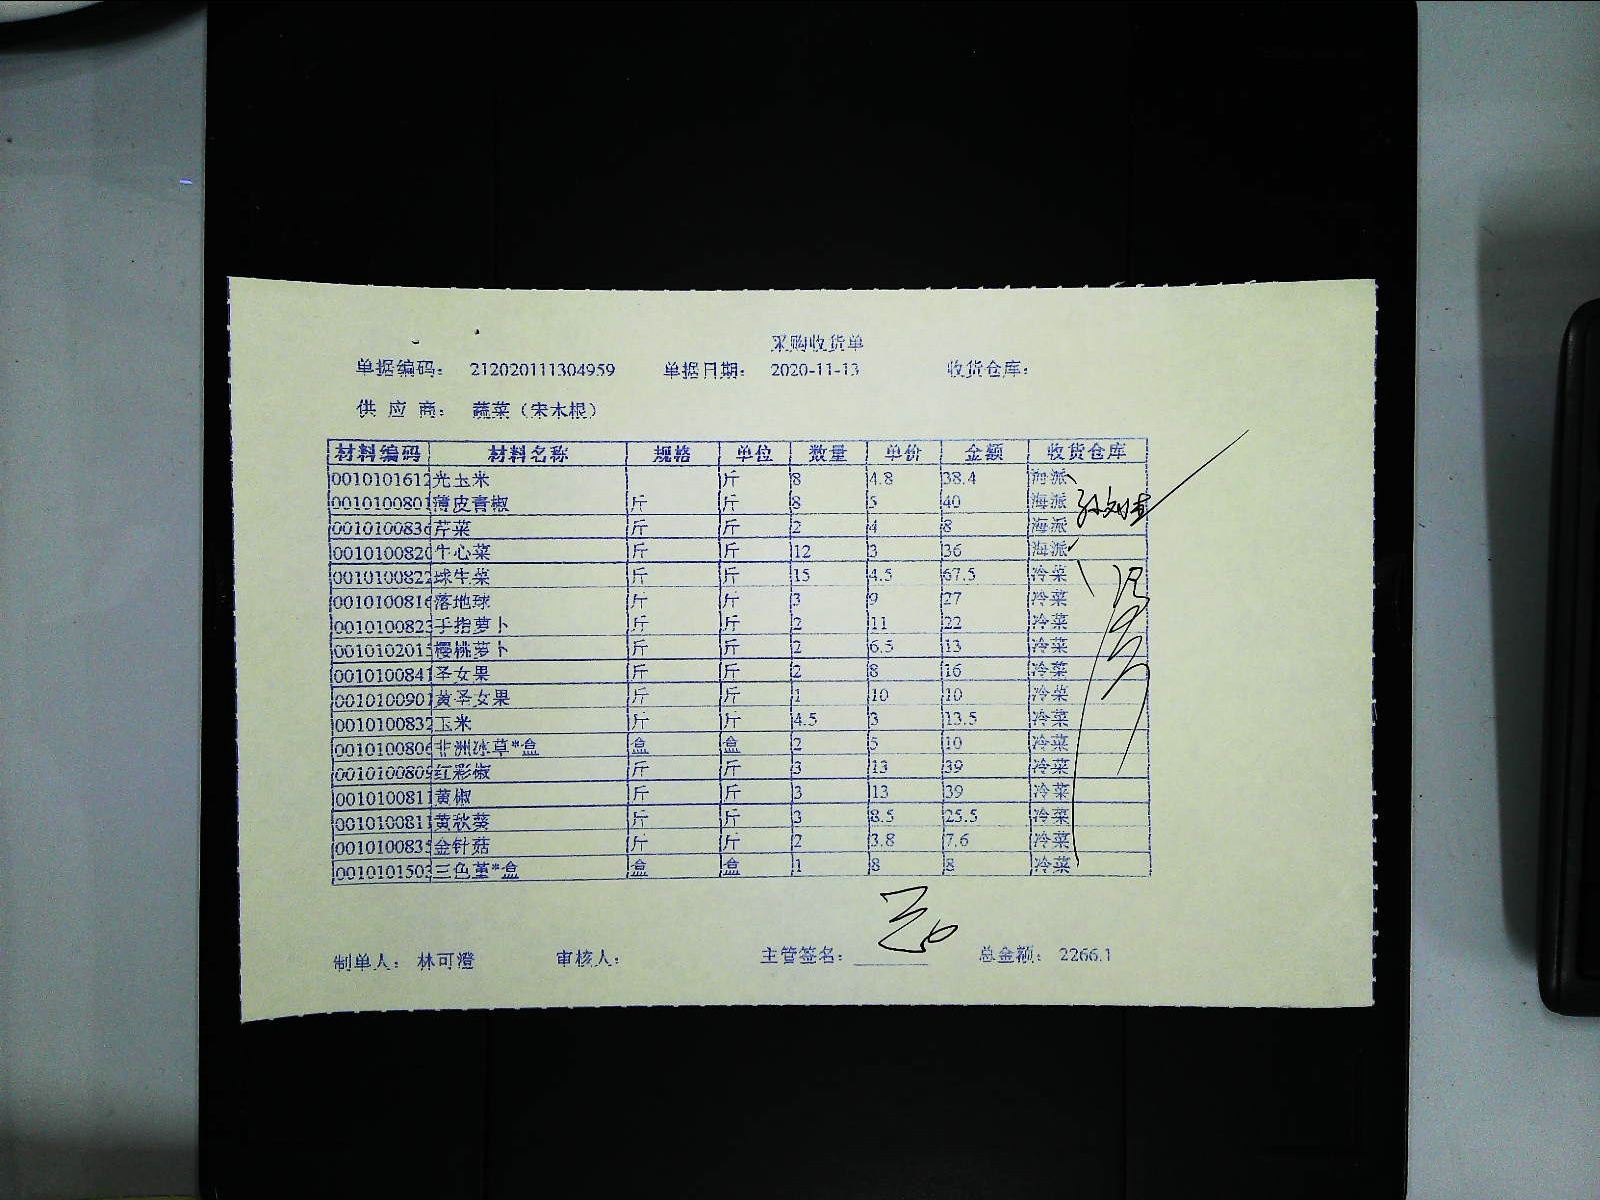 采购收货单
单据编码： 212020111304959 单据日期： 2020-11-13 收货仓库：
供 应 商： 蔬菜（宋木根）
材料编码 材料名称 规格 单位 数量 单价 金额 收货仓库
0010101612 光玉米 斤 8 4.8 38.4 海派
0010100801 薄皮青椒 斤 斤 8 5 40 海派
001010083 芹菜 斤 斤 2 4 8 海派
001010082 牛心菜 斤 斤 12 3 36 海派
0010100822 球生菜 斤 斤 15 4.5 67.5 冷菜
001010081 落地球 斤 斤 3 9 27 冷菜
001010082 手指萝卜 斤 斤 2 11 22 冷菜
001010201 樱桃萝卜 斤 斤 2 6.5 13 冷菜
0010100841 圣女果 斤 斤 2 8 16 冷菜
0010100901 黄圣女果 斤 斤 1 10 10 冷菜
0010100832 玉米 斤 斤 4.5 3 13.5 冷菜
001010080 非洲冰草*盒 盒 盒 2 5 10 冷菜
001010080 红彩椒 斤 斤 3 13 39 冷菜
0010100811 黄椒 斤 斤 3 13 39 冷菜
0010100811 黄秋葵 斤 斤 3 8.5 25.5 冷菜
001010083 金针菇 斤 斤 2 3.8 7.6 冷菜
001010150 三色堇*盒 盒 盒 1 8 8 冷菜
制单人： 林可澄 审核人： 主管签名： 总金额： 2266.1